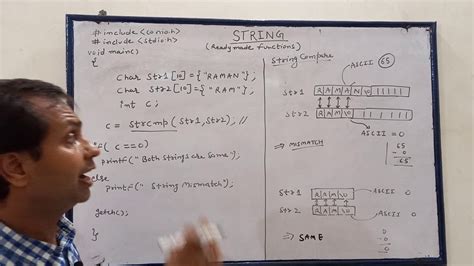 STRING
(Readymade functions)
# include <conio.h>
# include <stdio.h>
void main()
{
char Str1[10] = {"RAMAN"};
char Str2[10] = {"RAM"};
int c;
c = strcmp(Str1,Str2); //
if( c==0)
printf("Both Strings are Same");
else
printf(" String Mismatch");
getch();
}
String Compare
ASCII 65
Str1 R A M A N \0
Str2 R A M \0
ASCII = 0
⇒ MISMATCH
65
- 0
65
Str1 R A M \0 ASCII 0
Str2 R A M \0 ASCII 0
⇒ SAME
0
- 0
0